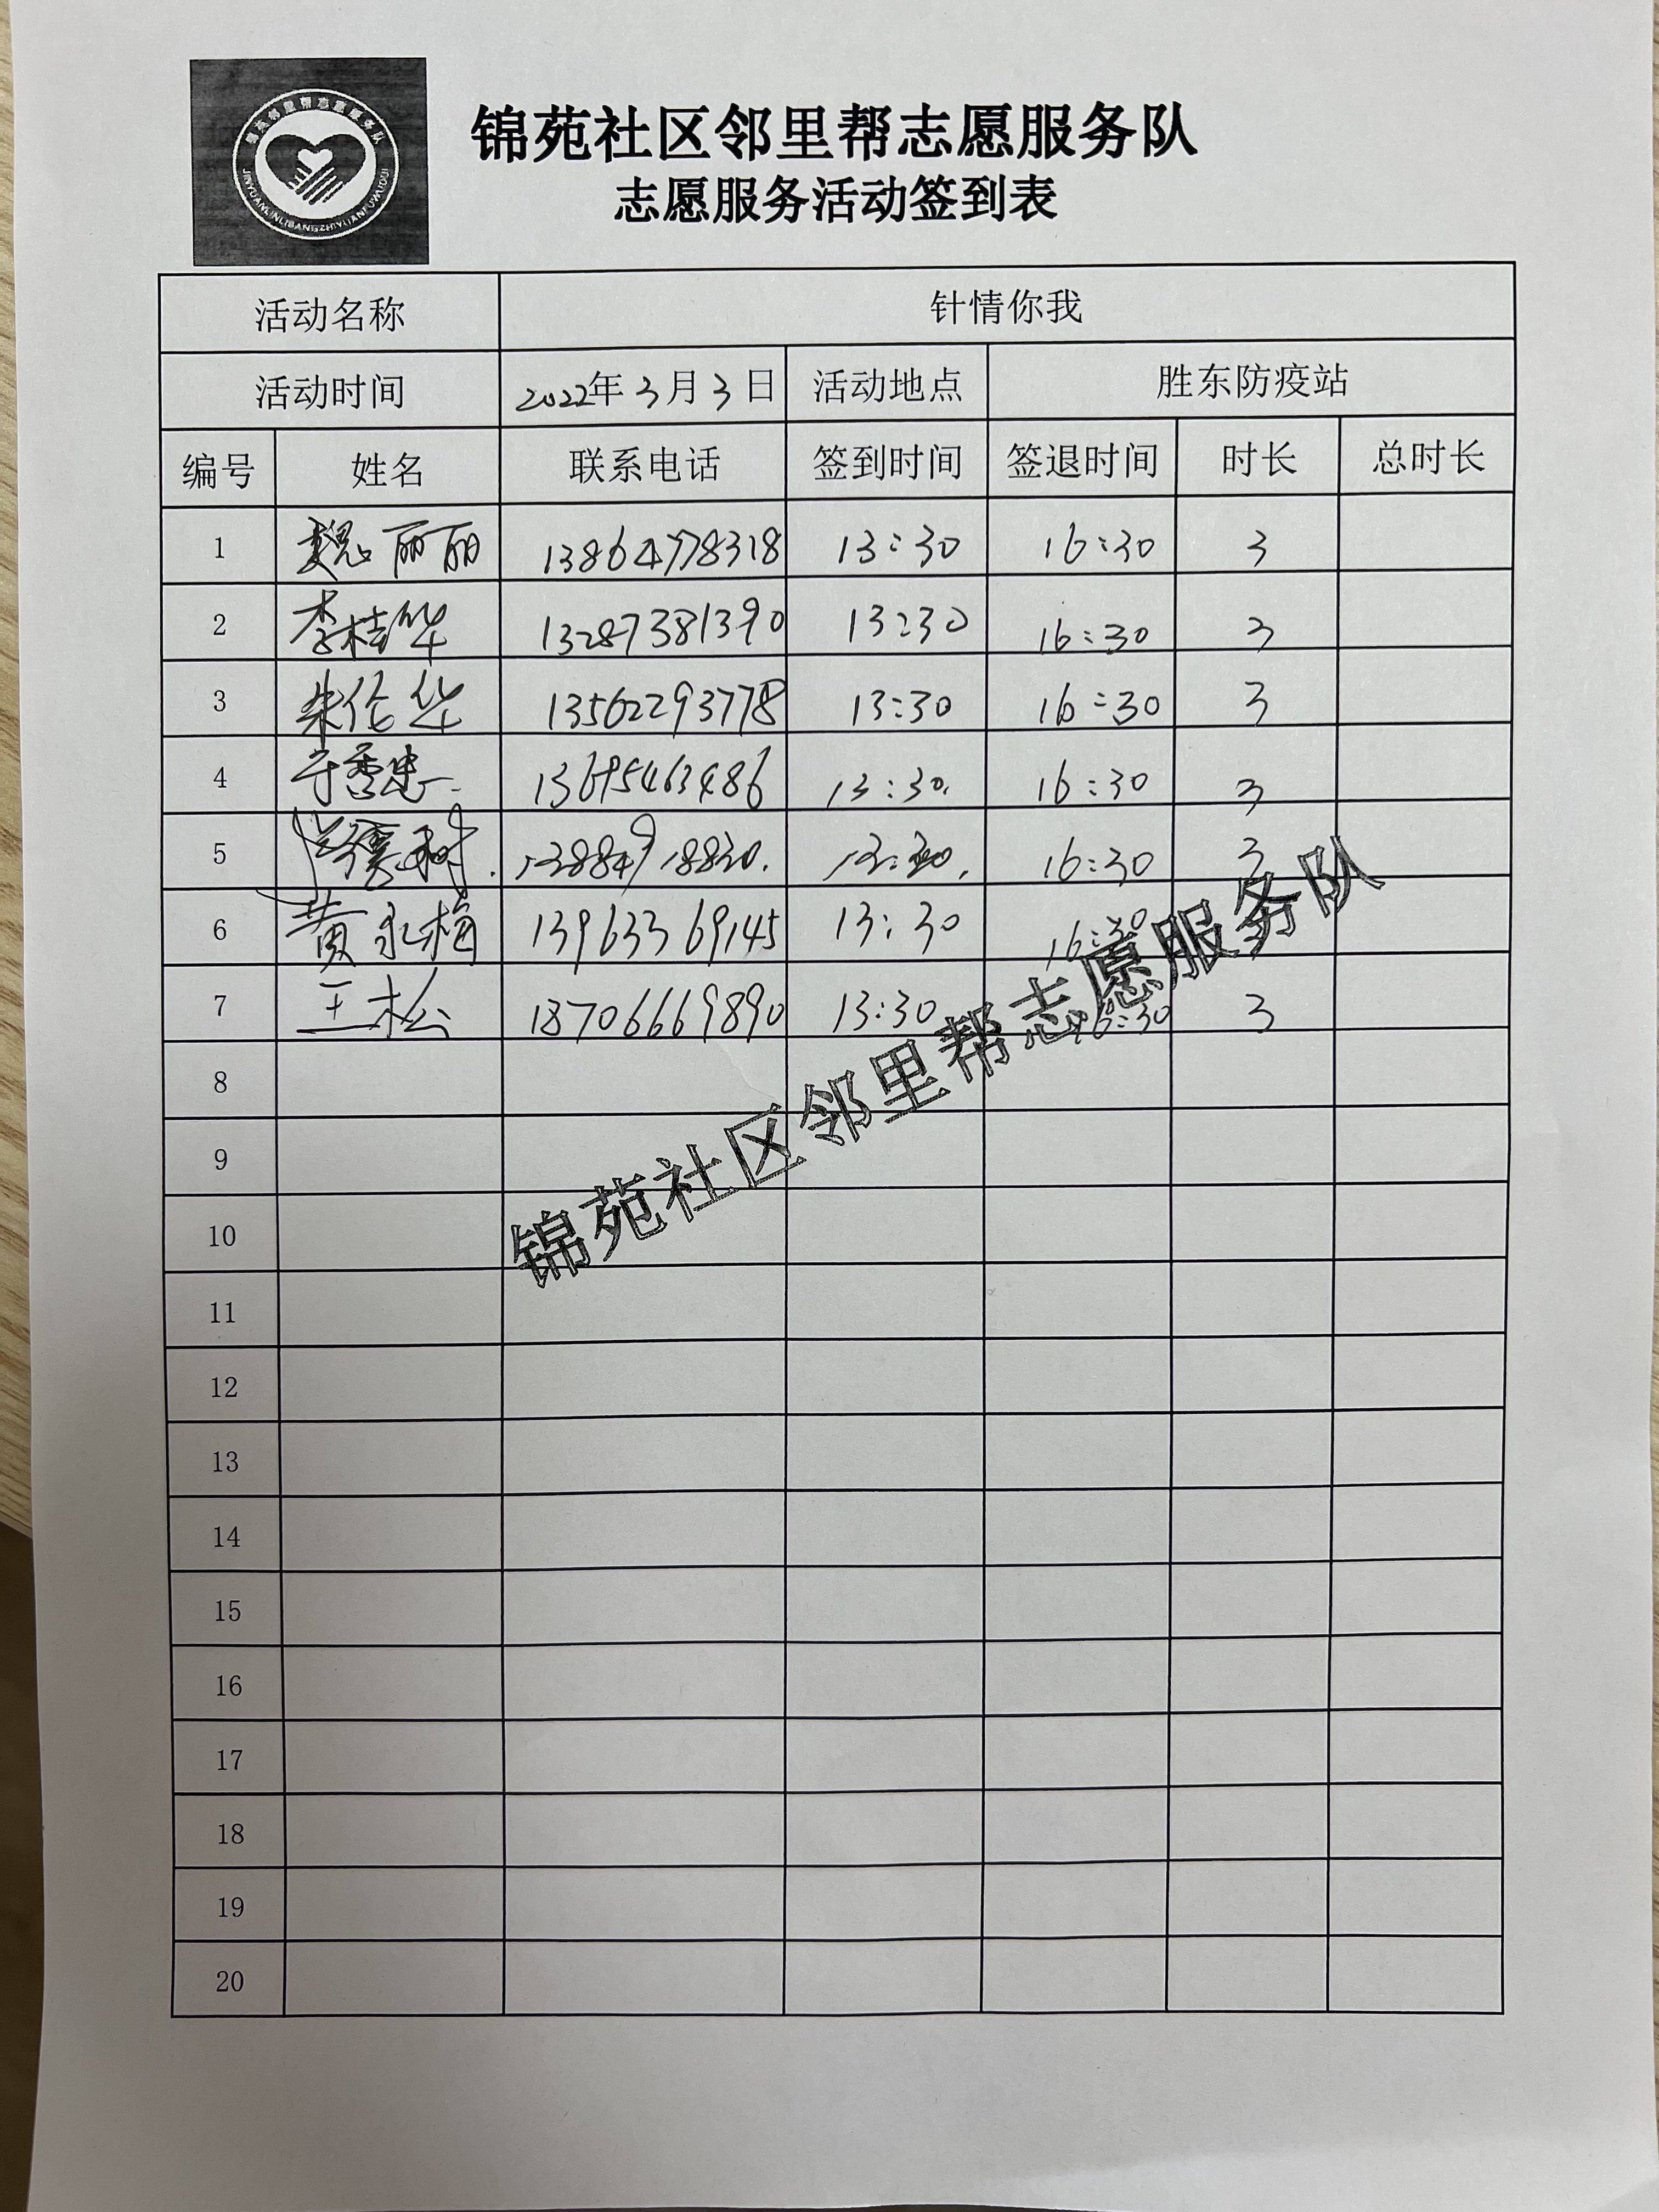 锦苑邻里帮志愿服务队
JINYUANLINLIBANGZHIYUANFUWUDUI
锦苑社区邻里帮志愿服务队
志愿服务活动签到表
活动名称 针情你我
活动时间 2022年3月3日 活动地点 胜东防疫站
编号 姓名 联系电话 签到时间 签退时间 时长 总时长
1 魏丽丽 13864778318 13:30 16:30 3
2 李桂华 13287381390 13:30 16:30 3
3 朱伦华 13562293778 13:30 16:30 3
4 于秀忠 13695463486 13:30. 16:30 3
5 13:30. 16:30 3
6 黄永梅 13963369145 13:30 16:30
7 王松 18706669890 13:30 16:30 3
8
9
10
11
12
13
14
15
16
17
18
19
20
锦苑社区邻里帮志愿服务队